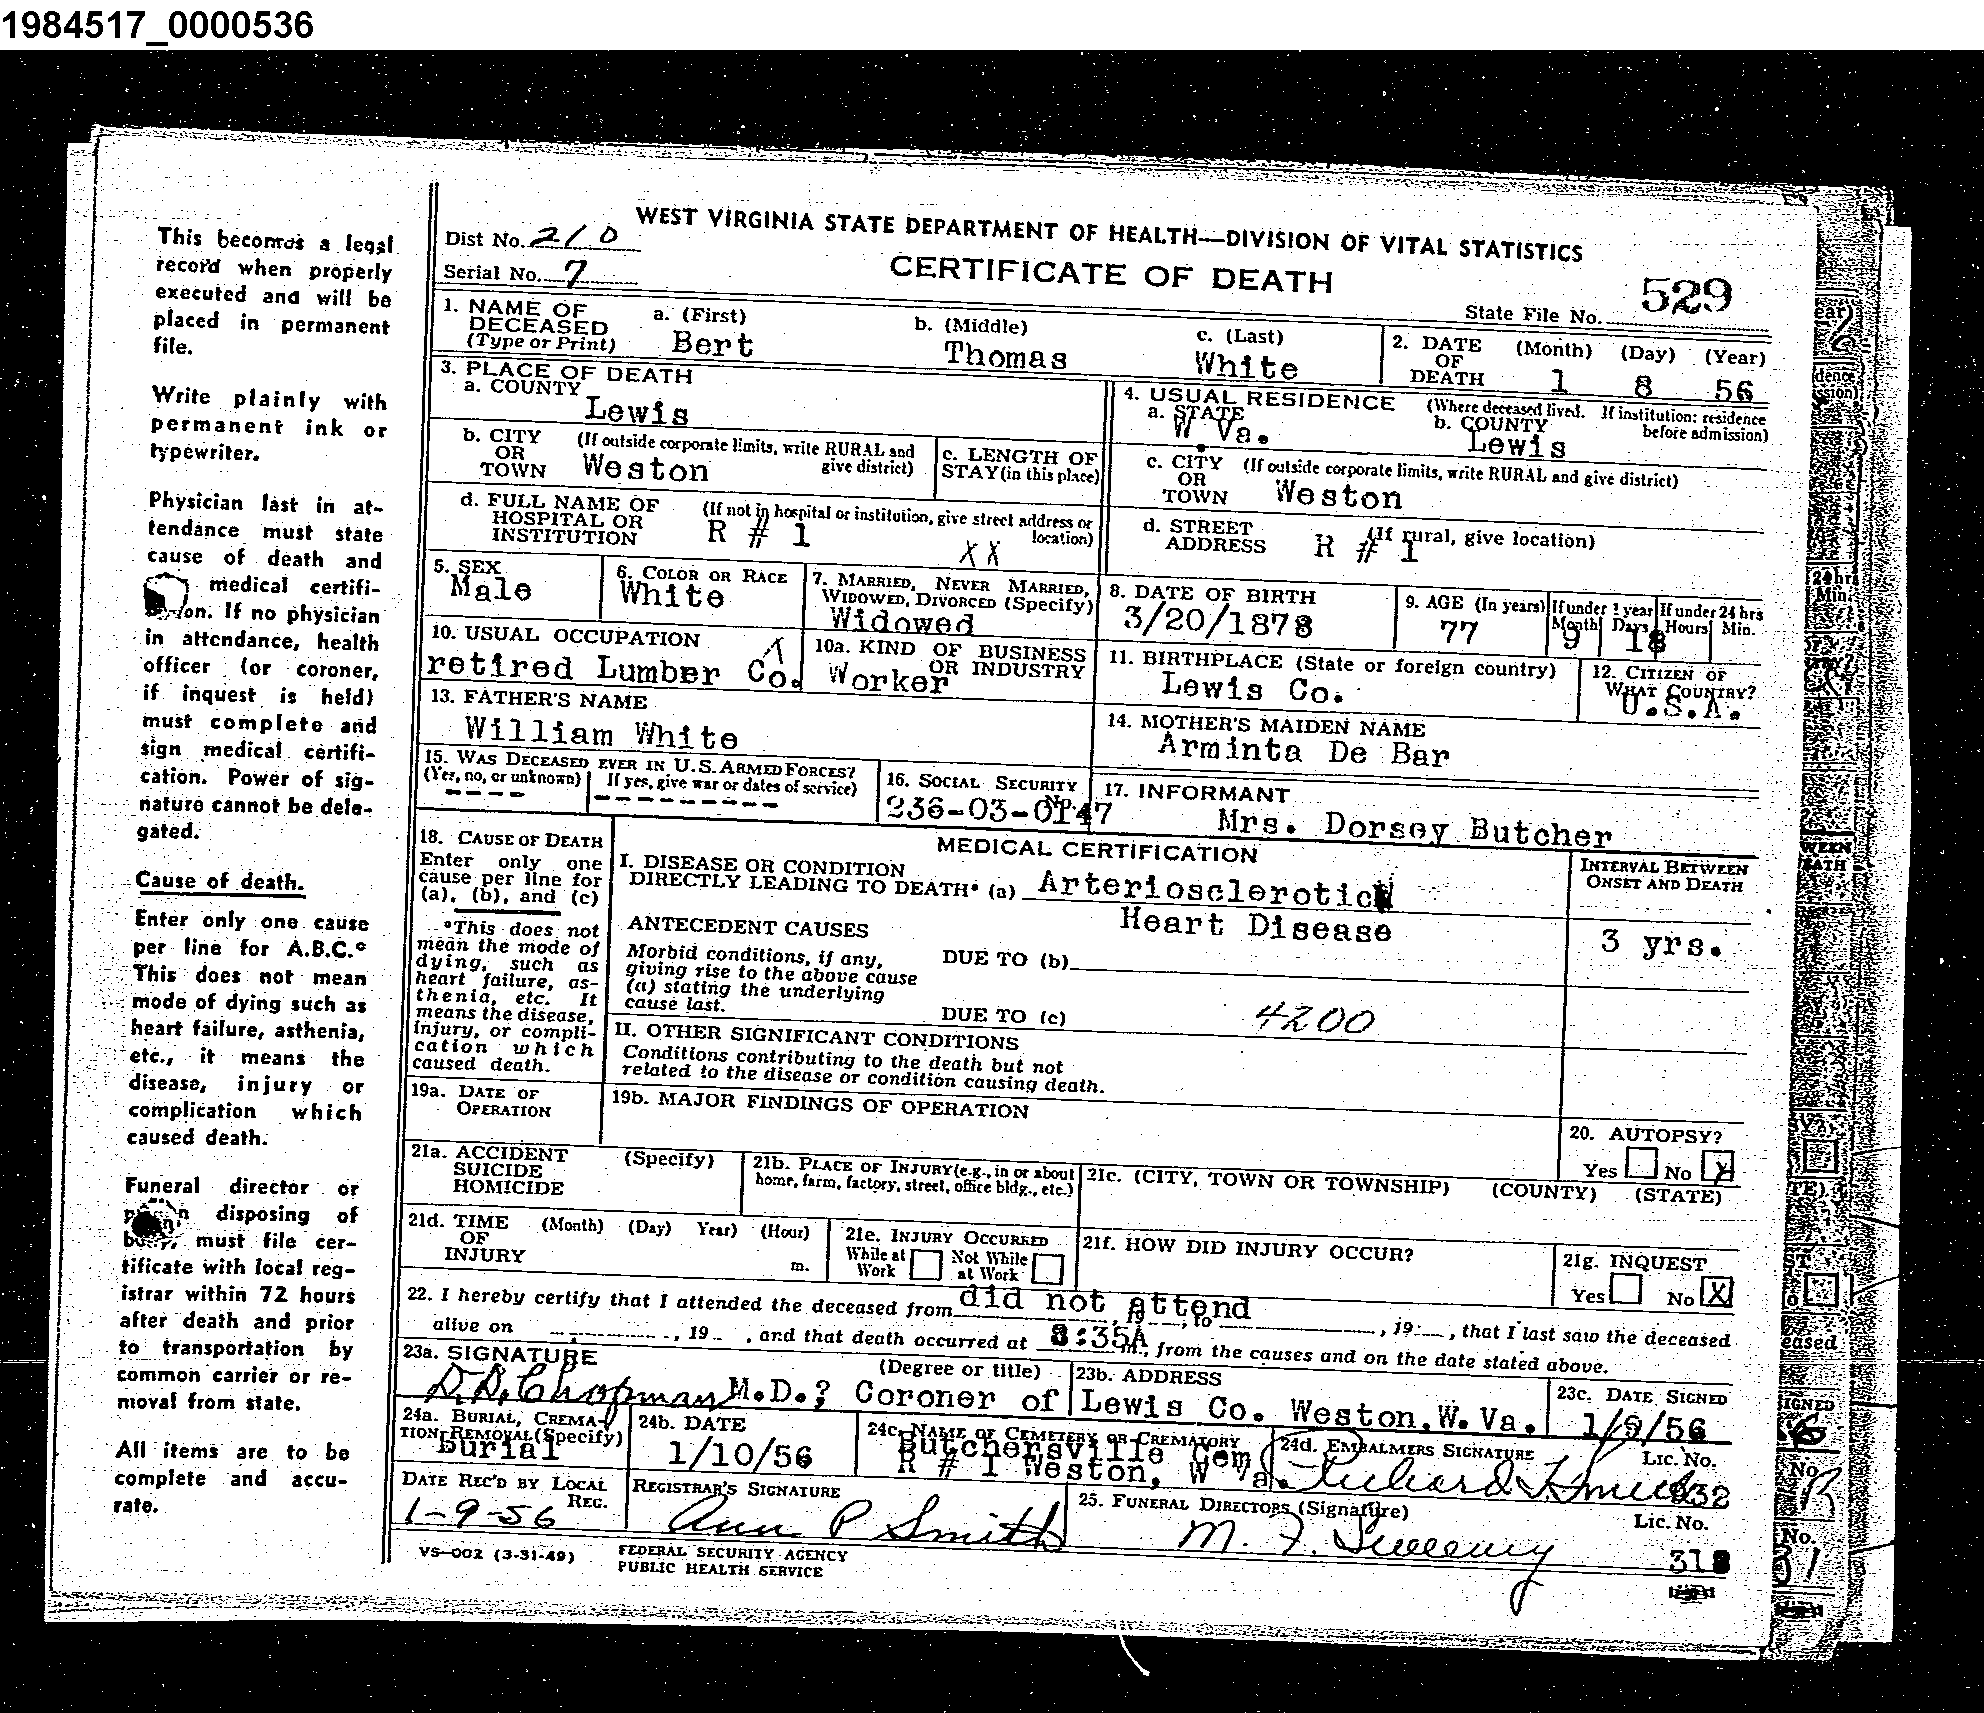 1984517_0000536
This becomes a legal
record when properly
executed and will be
placed in permanent
file.
Write plainly with
permanent ink or
typewriter.
Physician last in at-
tendance must state
cause of death and
medical certifi-
on. If no physician
in attendance, health
officer (or coroner,
if inquest is held)
must complete and
sign medical certifi-
cation. Power of sig-
nature cannot be dele-
gated.
Cause of death.
Enter only one cause
per line for A.B.C.*
This does not mean
mode of dying such as
heart failure, asthenia,
etc., it means the
disease, injury or
complication which
caused death.
Funeral director or
disposing of
must file cer-
tificate with local reg-
istrar within 72 hours
after death and prior
to transportation by
common carrier or re-
moval from state.
All items are to be
complete and accu-
rate.
WEST VIRGINIA STATE DEPARTMENT OF HEALTH—DIVISION OF VITAL STATISTICS
Dist No. 210
Serial No. 7
CERTIFICATE OF DEATH
State File No. 529
1. NAME OF DECEASED (Type or Print) a. (First) Bert b. (Middle) Thomas c. (Last) White
2. DATE OF DEATH (Month) 1 (Day) 8 (Year) 56
3. PLACE OF DEATH
a. COUNTY Lewis
b. CITY OR TOWN (If outside corporate limits, write RURAL and give district) Weston
c. LENGTH OF STAY (in this place)
d. FULL NAME OF HOSPITAL OR INSTITUTION (If not in hospital or institution, give street address or location) R # 1 XX
4. USUAL RESIDENCE (Where deceased lived. If institution: residence before admission)
a. STATE W.Va. b. COUNTY Lewis
c. CITY OR TOWN (If outside corporate limits, write RURAL and give district) Weston
d. STREET ADDRESS (If rural, give location) R # 1
5. SEX Male
6. COLOR OR RACE White
7. MARRIED, NEVER MARRIED, WIDOWED, DIVORCED (Specify) Widowed
8. DATE OF BIRTH 3/20/1878
9. AGE (In years) 77 If under 1 year Month 9 Days 18 If under 24 hrs Hours Min.
10. USUAL OCCUPATION retired Lumber Co.
10a. KIND OF BUSINESS OR INDUSTRY Worker
11. BIRTHPLACE (State or foreign country) Lewis Co.
12. CITIZEN OF WHAT COUNTRY? U.S.A.
13. FATHER'S NAME William White
14. MOTHER'S MAIDEN NAME Arminta De Bar
15. WAS DECEASED EVER IN U.S. ARMED FORCES?
(Yes, no, or unknown) ---- If yes, give war or dates of service) ---------
16. SOCIAL SECURITY No. 236-03-0147
17. INFORMANT Mrs. Dorsey Butcher
18. CAUSE OF DEATH
Enter only one
cause per line for
(a), (b), and (c)
*This does not
mean the mode of
dying, such as
heart failure, as-
thenia, etc. It
means the disease,
injury, or compli-
cation which
caused death.
MEDICAL CERTIFICATION
I. DISEASE OR CONDITION
DIRECTLY LEADING TO DEATH* (a) Arteriosclerotic
Heart Disease
INTERVAL BETWEEN ONSET AND DEATH
3 yrs.
ANTECEDENT CAUSES
Morbid conditions, if any,
giving rise to the above cause
(a) stating the underlying
cause last.
DUE TO (b)
DUE TO (c)
4200
II. OTHER SIGNIFICANT CONDITIONS
Conditions contributing to the death but not
related to the disease or condition causing death.
19a. DATE OF OPERATION
19b. MAJOR FINDINGS OF OPERATION
20. AUTOPSY?
Yes No X
21a. ACCIDENT SUICIDE HOMICIDE (Specify)
21b. PLACE OF INJURY (e.g., in or about home, farm, factory, street, office bldg., etc.)
21c. (CITY, TOWN OR TOWNSHIP) (COUNTY) (STATE)
21d. TIME OF INJURY (Month) (Day) Year) (Hour) m.
21e. INJURY OCCURRED While at Work Not While at Work
21f. HOW DID INJURY OCCUR?
21g. INQUEST
Yes No X
22. I hereby certify that I attended the deceased from did not attend, 19 , to , 19 , that I last saw the deceased
alive on , 19 , and that death occurred at 8:35A m., from the causes and on the date stated above.
23a. SIGNATURE (Degree or title) D.D. Chapman M.D.; Coroner of
23b. ADDRESS Lewis Co. Weston, W. Va.
23c. DATE SIGNED 1/9/56
24a. BURIAL, CREMATION, REMOVAL (Specify) Burial
24b. DATE 1/10/56
24c. NAME OF CEMETERY OR CREMATORY Butchersville Cem
R # 1 Weston, W Va.
24d. EMBALMERS SIGNATURE Lic. No.
DATE REC'D BY LOCAL REG. 1-9-56
REGISTRAR'S SIGNATURE Ann P Smith
25. FUNERAL DIRECTORS (Signature) M. F. Sweeney Lic. No. 318
VS—002 (3-31-49)
FEDERAL SECURITY AGENCY
PUBLIC HEALTH SERVICE